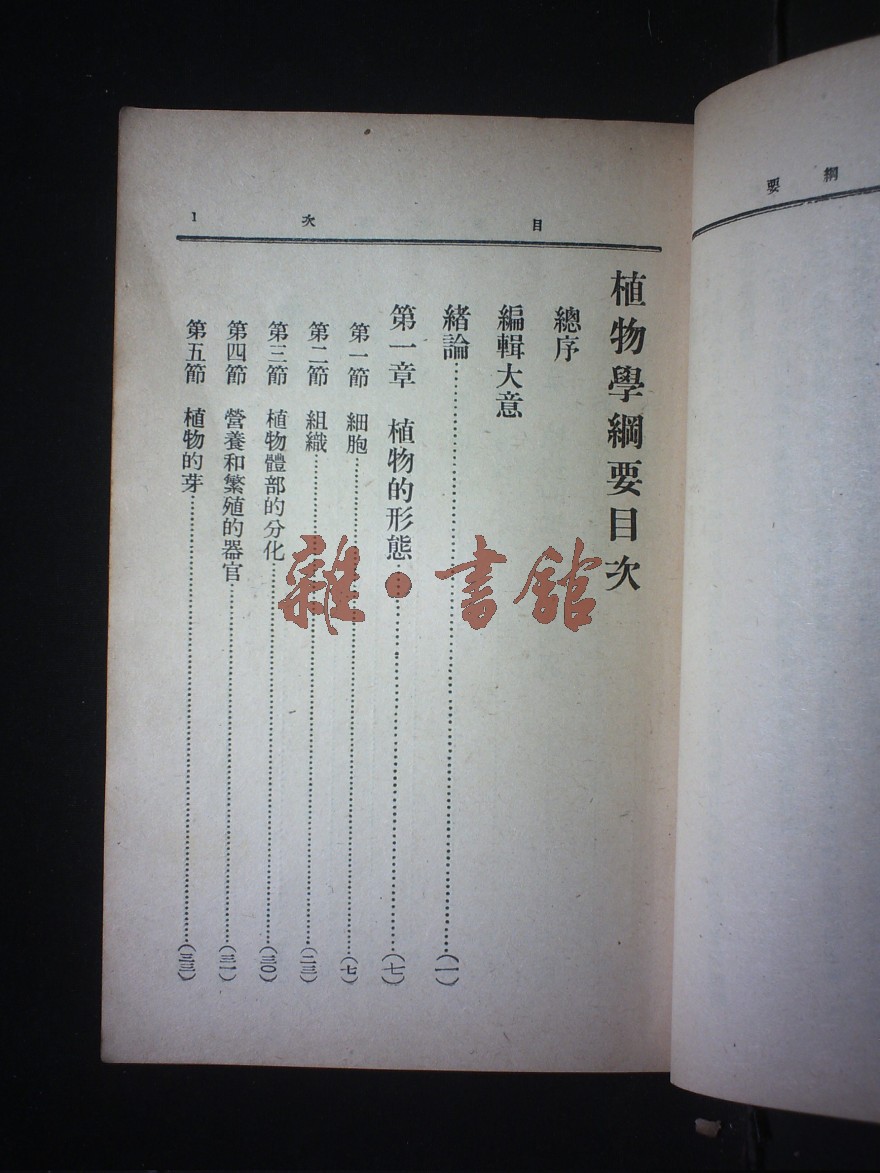 目次 1
植物學綱要目次
總序
編輯大意
緒論……(一)
第一章 植物的形態……(七)
第一節 細胞……(七)
第二節 組織……(二三)
第三節 植物體部的分化……(三〇)
第四節 營養和繁殖的器官……(三一)
第五節 植物的芽……(三三)
綱要
雜·書館